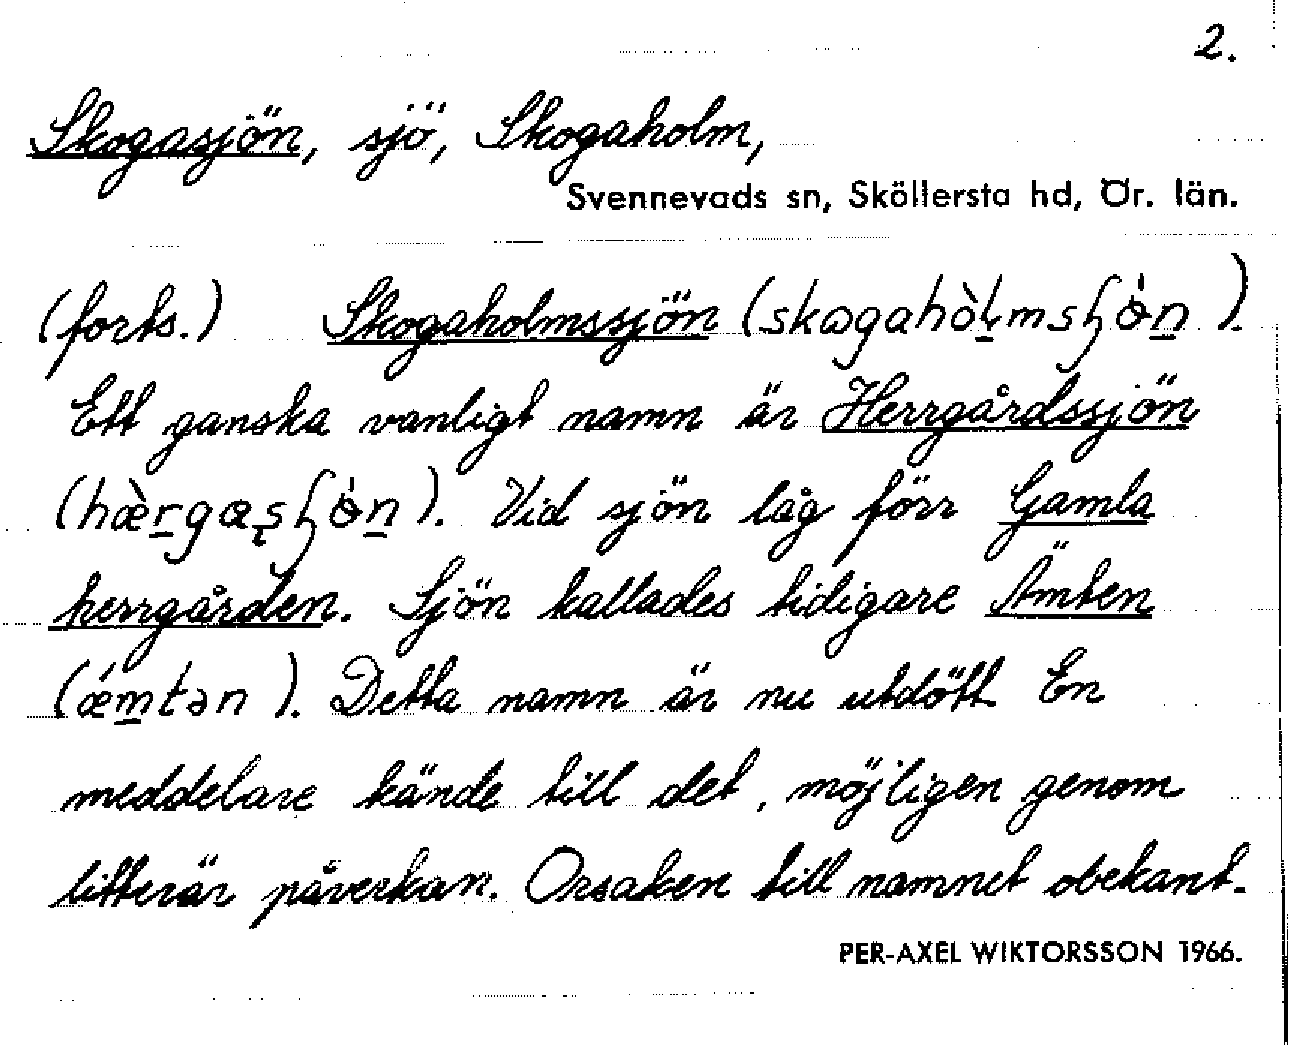 2.
Skogasjön, sjö, Skogaholm,
Svennevads sn, Sköllersta hd, Ör. län.
(forts.) Skogaholmssjön
Ett ganska vanligt namn är Herrgårdssjön
Vid sjön låg förr Gamla
herrgården. Sjön kallades tidigare Ämten
(ǽmtən). Detta namn är nu utdött En
meddelare kände till det, möjligen genom
litterär påverkan. Orsaken till namnet obekant.
PER-AXEL WIKTORSSON 1966.